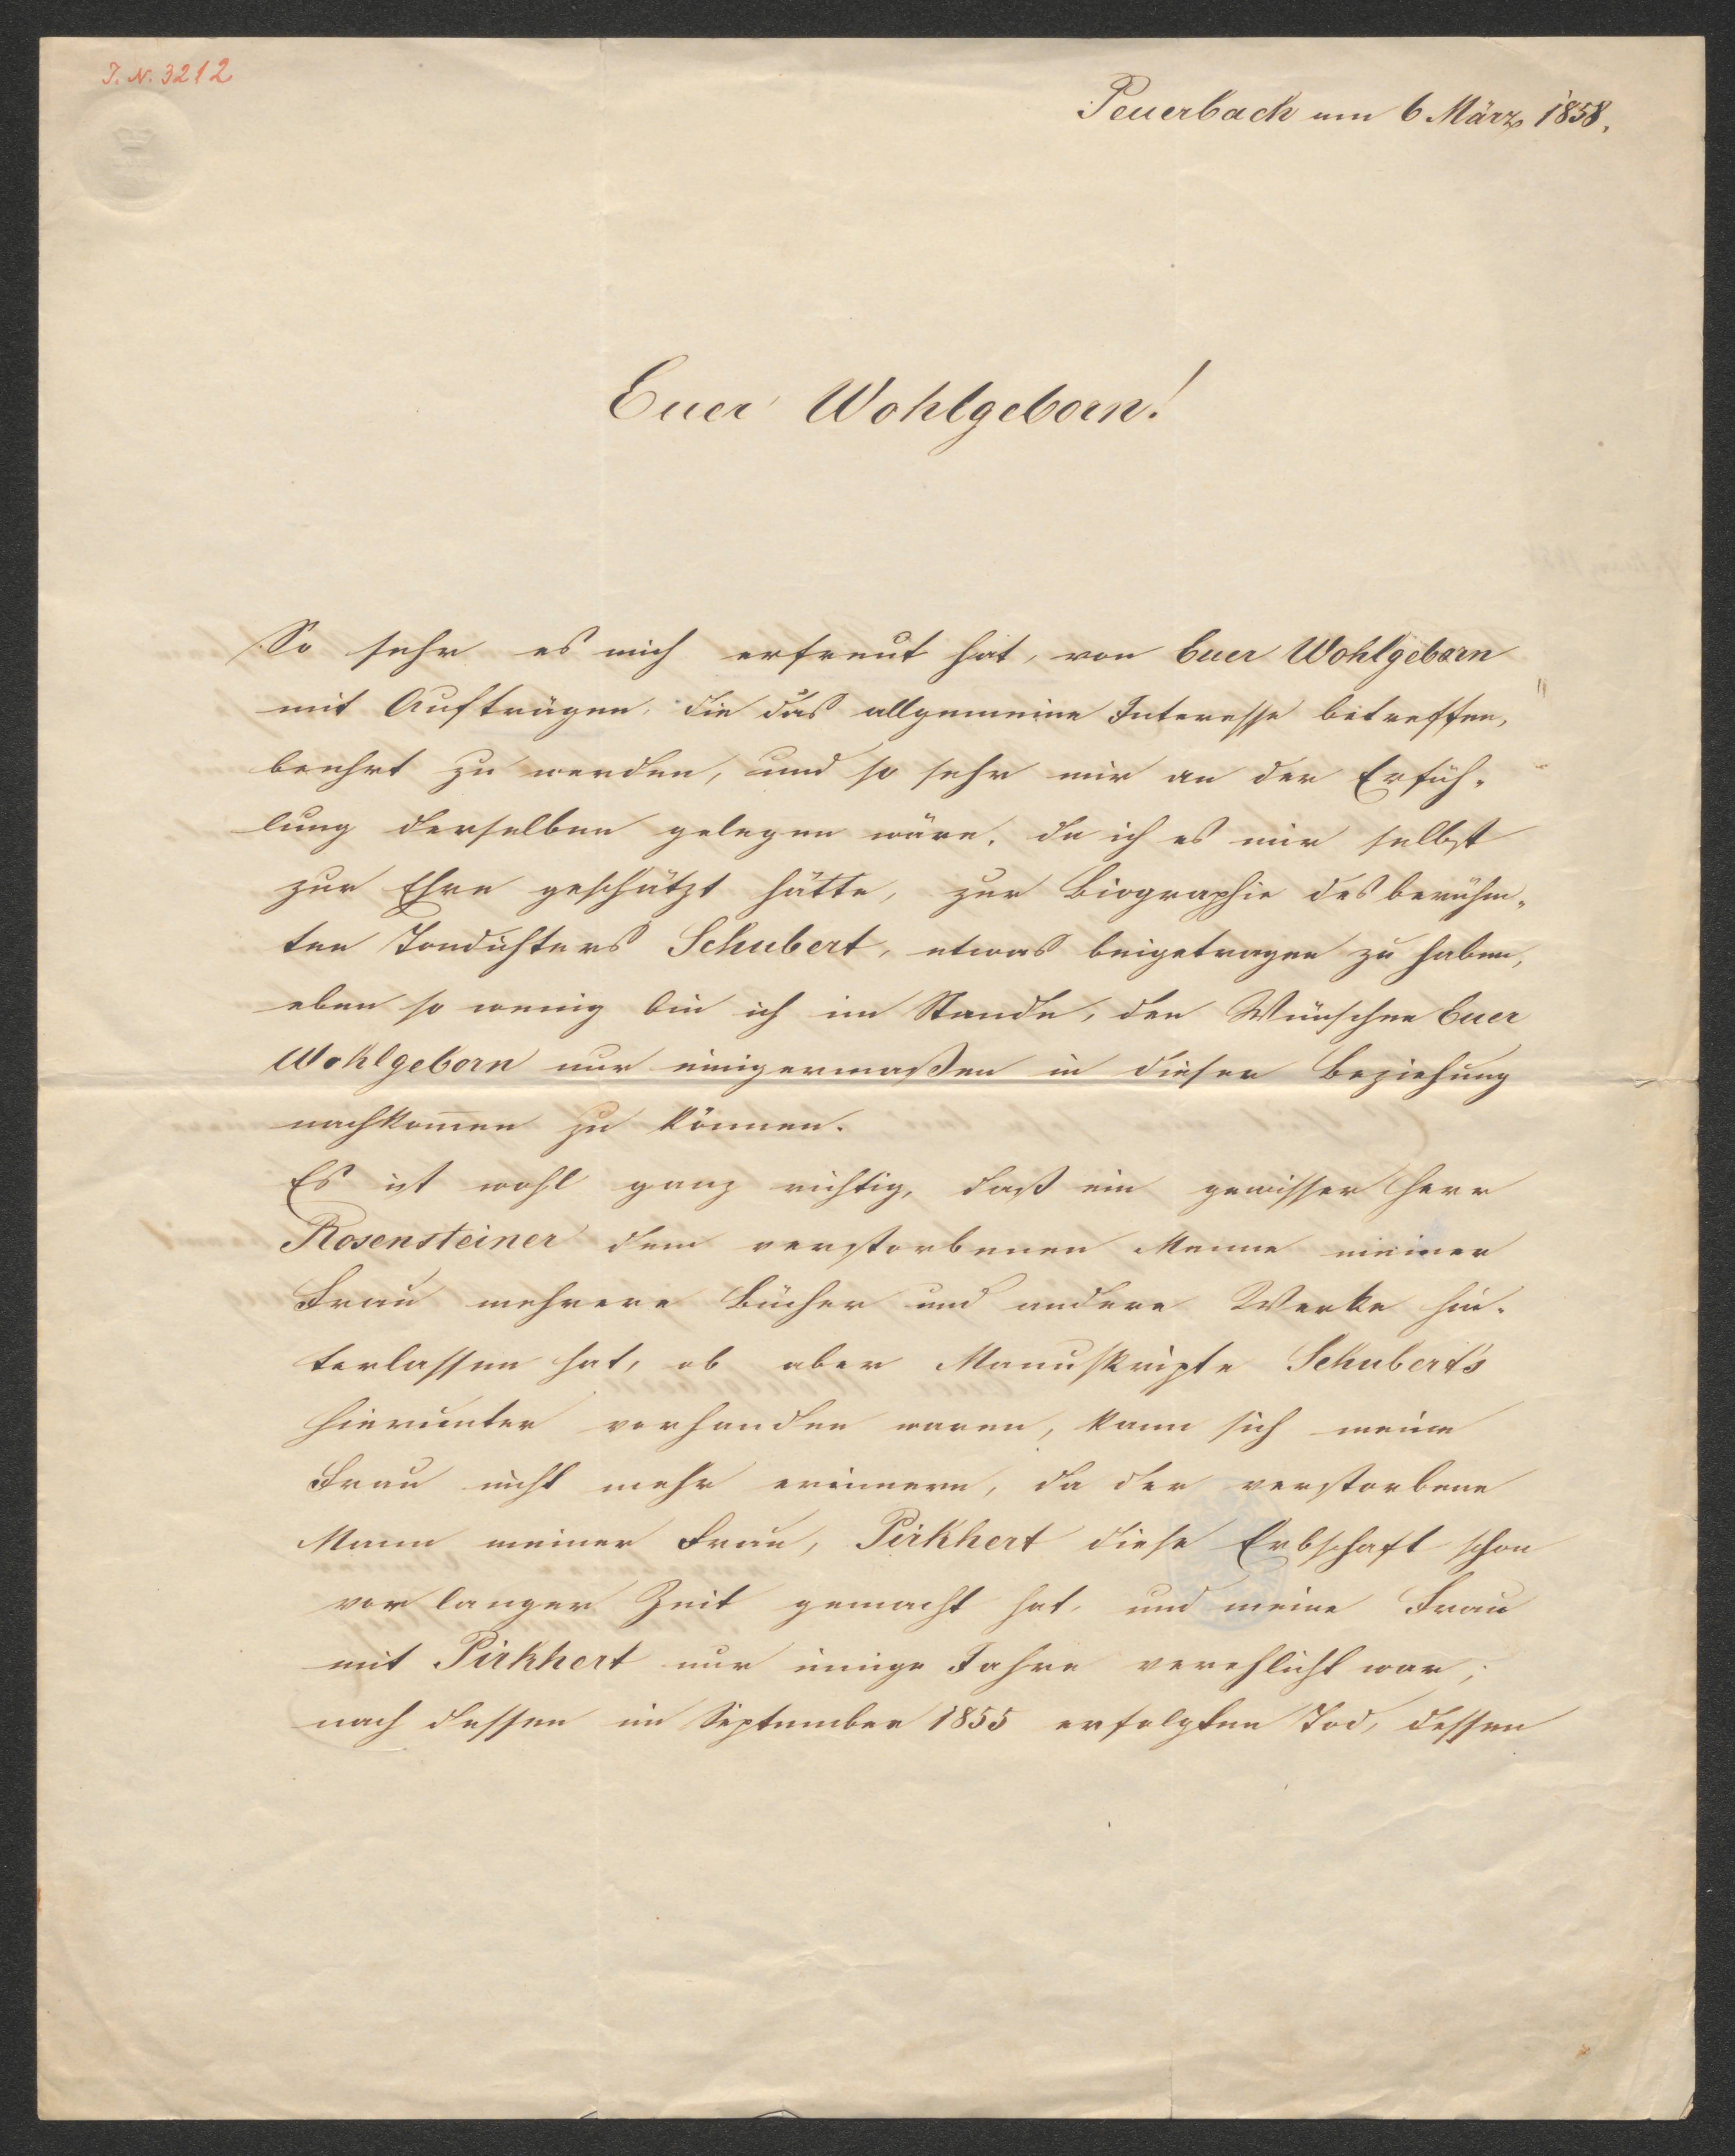 I. N. 3212
Peuerbach am 6 März 1858.
Euer Wohlgeborn!
So sehr es mich erfreut hat, von Euer Wohlgeborn
mit Aufträgen, die das allgemeine Interesse betreffen,
beehrt zu werden, und so sehr mir an der Erfüh-
lung derselben gelegen wäre, da ich es mir selbst
zur Ehre geschätzt hätte, zur Biographie des berühm-
ten Tondichters Schubert, etwas beigetragen zu haben,
eben so wenig bin ich im Stande, den Wünschen Euer
Wohlgeborn nur einigermaßen in dieser Beziehung
nachkom̄en zu können.
Es ist wohl ganz richtig, daß ein gewisser Herr
Rosensteiner dem verstorbenen Manne meiner
Frau mehrere Bücher und andere Werke hin-
terlassen hat, ob aber Manuskripte Schubert's
hierunter vorhanden waren, kann sich meine
Frau nicht mehr erinnern, da der verstorbene
Mann meiner Frau, Pirkhert diese Erbschaft schon
vor langer Zeit gemacht hat, und meine Frau
mit Pirkhert nur einige Jahre verehlicht war;
nach dessen im September 1855 erfolgten Tod, dessen